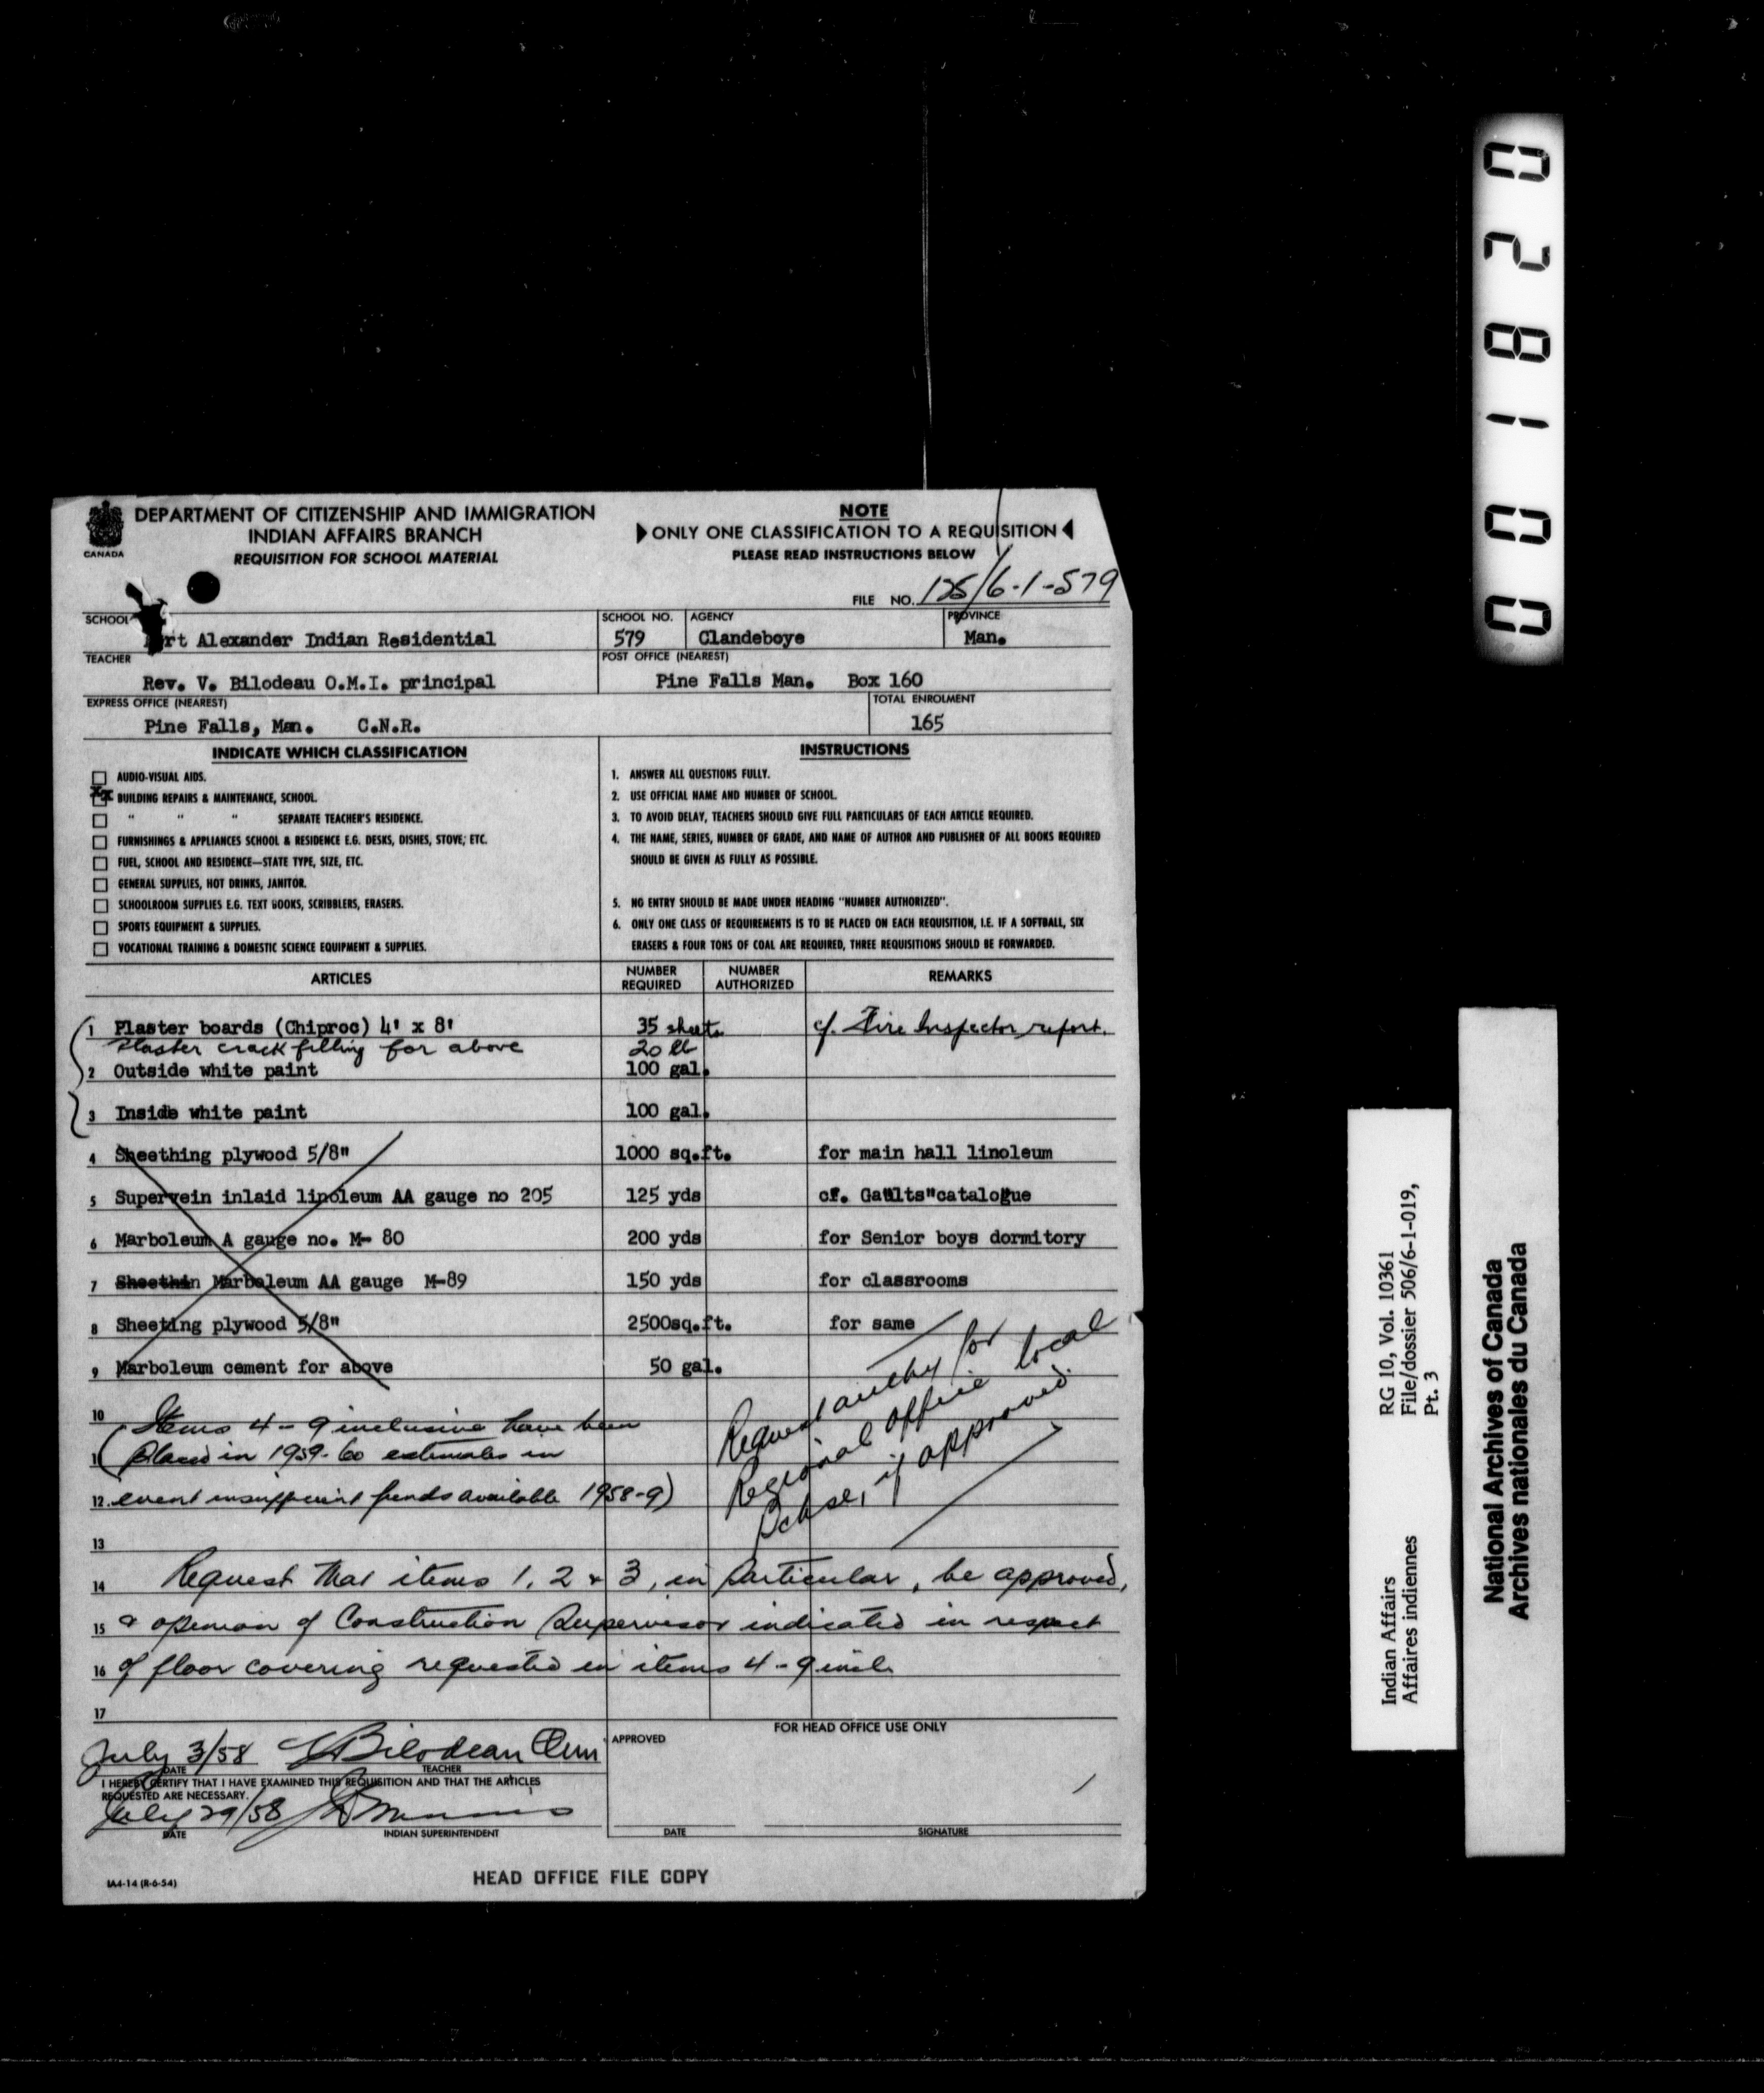 DEPARTMENT OF CITIZENSHIP AND IMMIGRATION
INDIAN AFFAIRS BRANCH
REQUISITION FOR SCHOOL MATERIAL
CANADA
NOTE
ONLY ONE CLASSIFICATION TO A REQUISITION
PLEASE READ INSTRUCTIONS BELOW
FILE NO. 125/6-1-579
SCHOOL
rt Alexander Indian Residential
SCHOOL NO.
579
AGENCY
Clandeboye
PROVINCE
Man.
TEACHER
Rev. V. Bilodeau O.M.I. principal
POST OFFICE (NEAREST)
Pine Falls Man. Box 160
EXPRESS OFFICE (NEAREST)
Pine Falls, Man. C.N.R.
TOTAL ENROLMENT
165
INDICATE WHICH CLASSIFICATION
AUDIO-VISUAL AIDS.
xx BUILDING REPAIRS & MAINTENANCE, SCHOOL.
" " " SEPARATE TEACHER'S RESIDENCE.
FURNISHINGS & APPLIANCES SCHOOL & RESIDENCE E.G. DESKS, DISHES, STOVE, ETC.
FUEL, SCHOOL AND RESIDENCE—STATE TYPE, SIZE, ETC.
GENERAL SUPPLIES, HOT DRINKS, JANITOR.
SCHOOLROOM SUPPLIES E.G. TEXT BOOKS, SCRIBBLERS, ERASERS.
SPORTS EQUIPMENT & SUPPLIES.
VOCATIONAL TRAINING & DOMESTIC SCIENCE EQUIPMENT & SUPPLIES.
INSTRUCTIONS
1. ANSWER ALL QUESTIONS FULLY.
2. USE OFFICIAL NAME AND NUMBER OF SCHOOL.
3. TO AVOID DELAY, TEACHERS SHOULD GIVE FULL PARTICULARS OF EACH ARTICLE REQUIRED.
4. THE NAME, SERIES, NUMBER OF GRADE, AND NAME OF AUTHOR AND PUBLISHER OF ALL BOOKS REQUIRED
SHOULD BE GIVEN AS FULLY AS POSSIBLE.
5. NO ENTRY SHOULD BE MADE UNDER HEADING "NUMBER AUTHORIZED".
6. ONLY ONE CLASS OF REQUIREMENTS IS TO BE PLACED ON EACH REQUISITION, I.E. IF A SOFTBALL, SIX
ERASERS & FOUR TONS OF COAL ARE REQUIRED, THREE REQUISITIONS SHOULD BE FORWARDED.
ARTICLES NUMBER REQUIRED NUMBER AUTHORIZED REMARKS
1 Plaster boards (Chiproc) 4' x 8' 35 sheets cf. Fire Inspector report.
Plaster crack filling for above 20 lb
2 Outside white paint 100 gal.
3 Inside white paint 100 gal.
4 Sheething plywood 5/8" 1000 sq.ft. for main hall linoleum
5 Supervein inlaid linoleum AA gauge no 205 125 yds cf. Gaults"catalogue
6 Marboleum A gauge no. M- 80 200 yds for Senior boys dormitory
7 Sheethin Marboleum AA gauge M-89 150 yds for classrooms
8 Sheeting plywood 5/8" 2500sq.ft. for same
9 Marboleum cement for above 50 gal.
10 (Items 4-9 inclusive have been
11 placed in 1959-60 estimates in
12 event insufficient funds available 1958-9)
Request authy for
Regional office local
pchse, if approved.
13
14 Request that items 1, 2 & 3, in particular, be approved,
15 & opinion of Construction Supervisor indicated in respect
16 of floor covering requested in items 4-9 incl.
17
July 3/58 V Bilodeau Omi
DATE TEACHER
I HEREBY CERTIFY THAT I HAVE EXAMINED THIS REQUISITION AND THAT THE ARTICLES
REQUESTED ARE NECESSARY.
July 29/58
DATE INDIAN SUPERINTENDENT
FOR HEAD OFFICE USE ONLY
APPROVED
DATE SIGNATURE
IA4-14 (R-6-54)
HEAD OFFICE FILE COPY
001820
Indian Affairs RG 10, Vol. 10361
Affaires indiennes File/dossier 506/6-1-019,
Pt. 3
National Archives of Canada
Archives nationales du Canada